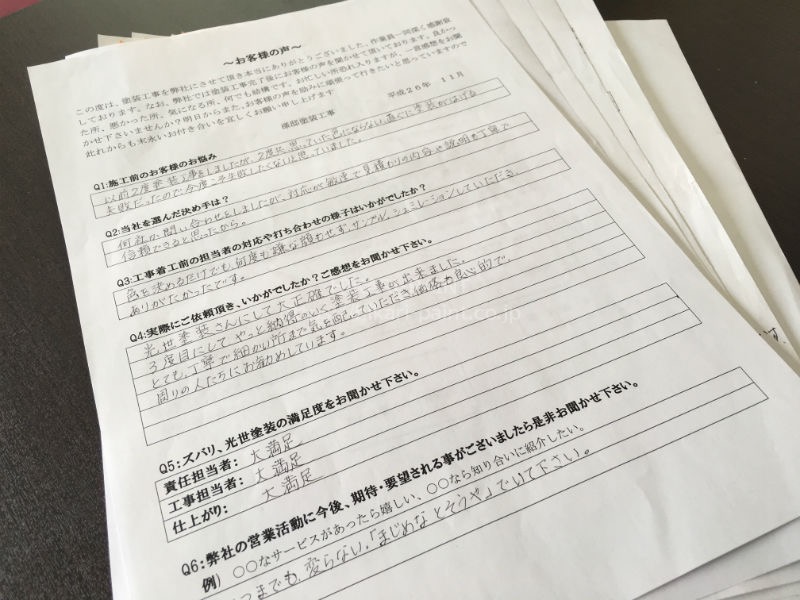 ～お客様の声～
この度は、塗装工事を弊社にさせて頂き本当にありがとうございました。作業員一同深く感謝致
しております。なお、弊社では塗装工事完了後にお客様の声を聞かせて頂いております。良かっ
た所、悪かった所、気になる所、何でも結構です。お忙しい所恐れ入りますが、一言感想をお聞
かせ下さいませんか？明日からまた、お客様の声を励みに頑張って行きたいと思っていますので
此れからも末永いお付き合いを宜しくお願い申し上げます
平成26年 11月
様邸塗装工事
Q1:施工前のお客様のお悩み
以前2度塗装工事をしましたが、2度共、思っていた色にならない、直ぐに塗装がはげる
失敗だったので今度こそ失敗したくないと思っていました。
Q2:当社を選んだ決め手は？
何社か問い合わせをしましたが、対応が敏速で見積りの内容や説明も丁寧で
信頼できると思ったから。
Q3:工事着工前の担当者の対応や打ち合わせの様子はいかがでしたか？
色を決めるだけでも、何度も嫌な顔もせず、サンプル、シュミレーションしていただき、
ありがたかったです。
Q4:実際にご依頼頂き、いかがでしたか？ご感想をお聞かせ下さい。
光世塗装さんにして大正確でした。
3度目にして、やっと納得のいく塗装工事が出来ました。
とても、丁寧で細かい所まで気を配っていただき価格も良心的で、
周りの人たちにお勧めしています。
Q5:ズバリ、光世塗装の満足度をお聞かせ下さい。
責任担当者: 大満足
工事担当者: 大満足
仕上がり: 大満足
Q6:弊社の営業活動に今後、期待・要望される事がございましたら是非お聞かせ下さい。
例）○○なサービスがあったら嬉しい、○○なら知り合いに紹介したい。
つまでも、変らない、「まじめな とそうや」でいて下さい。